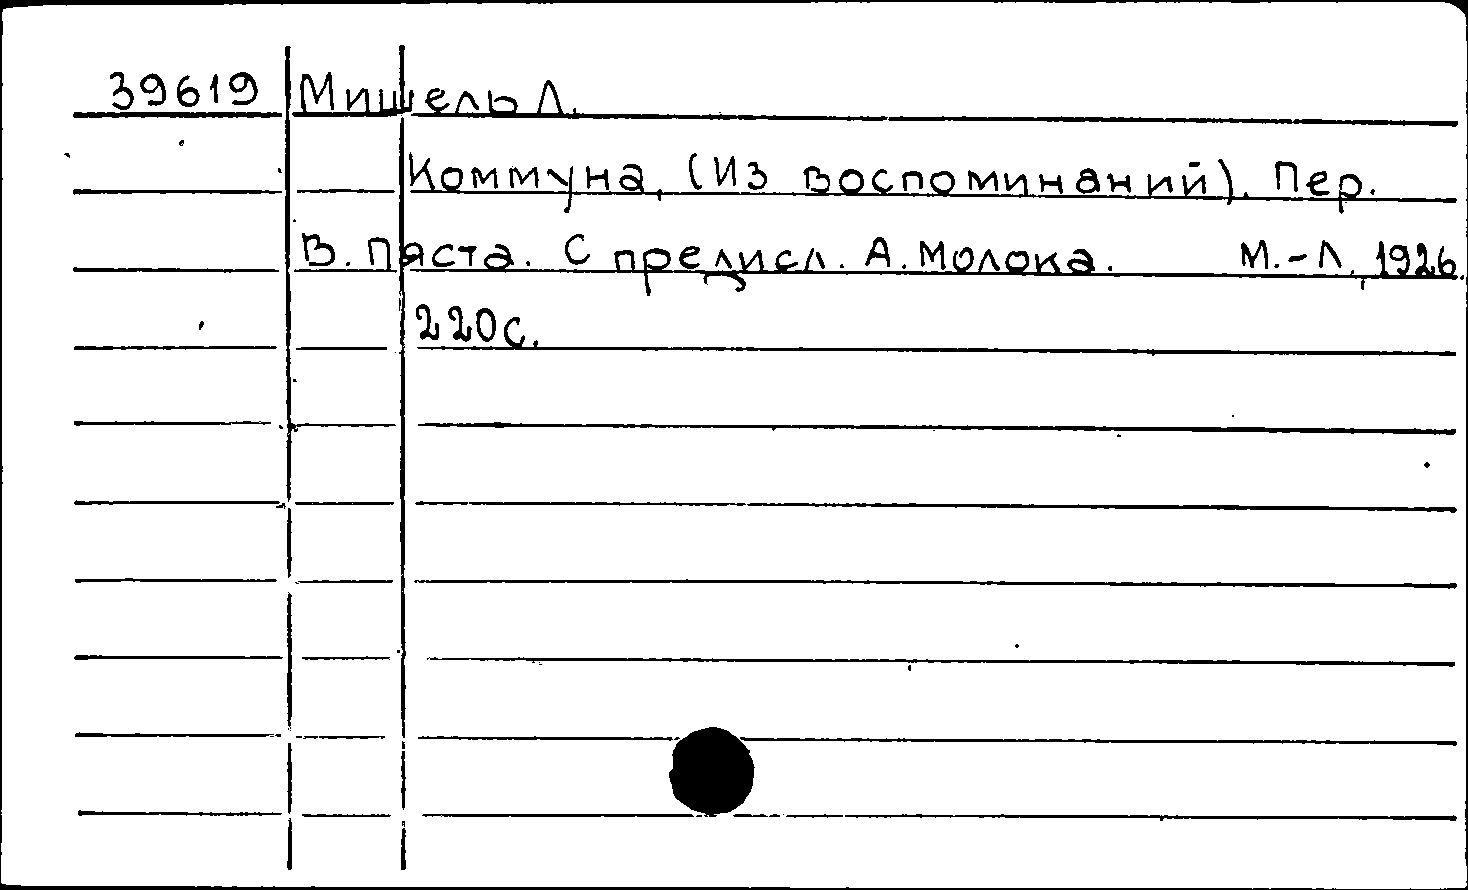 39619 Мишель Л.
Коммуна, (Из воспоминаний). Пер.
В. Пяста. С предисл. А. Молока. М.-Л., 1926.
220с.